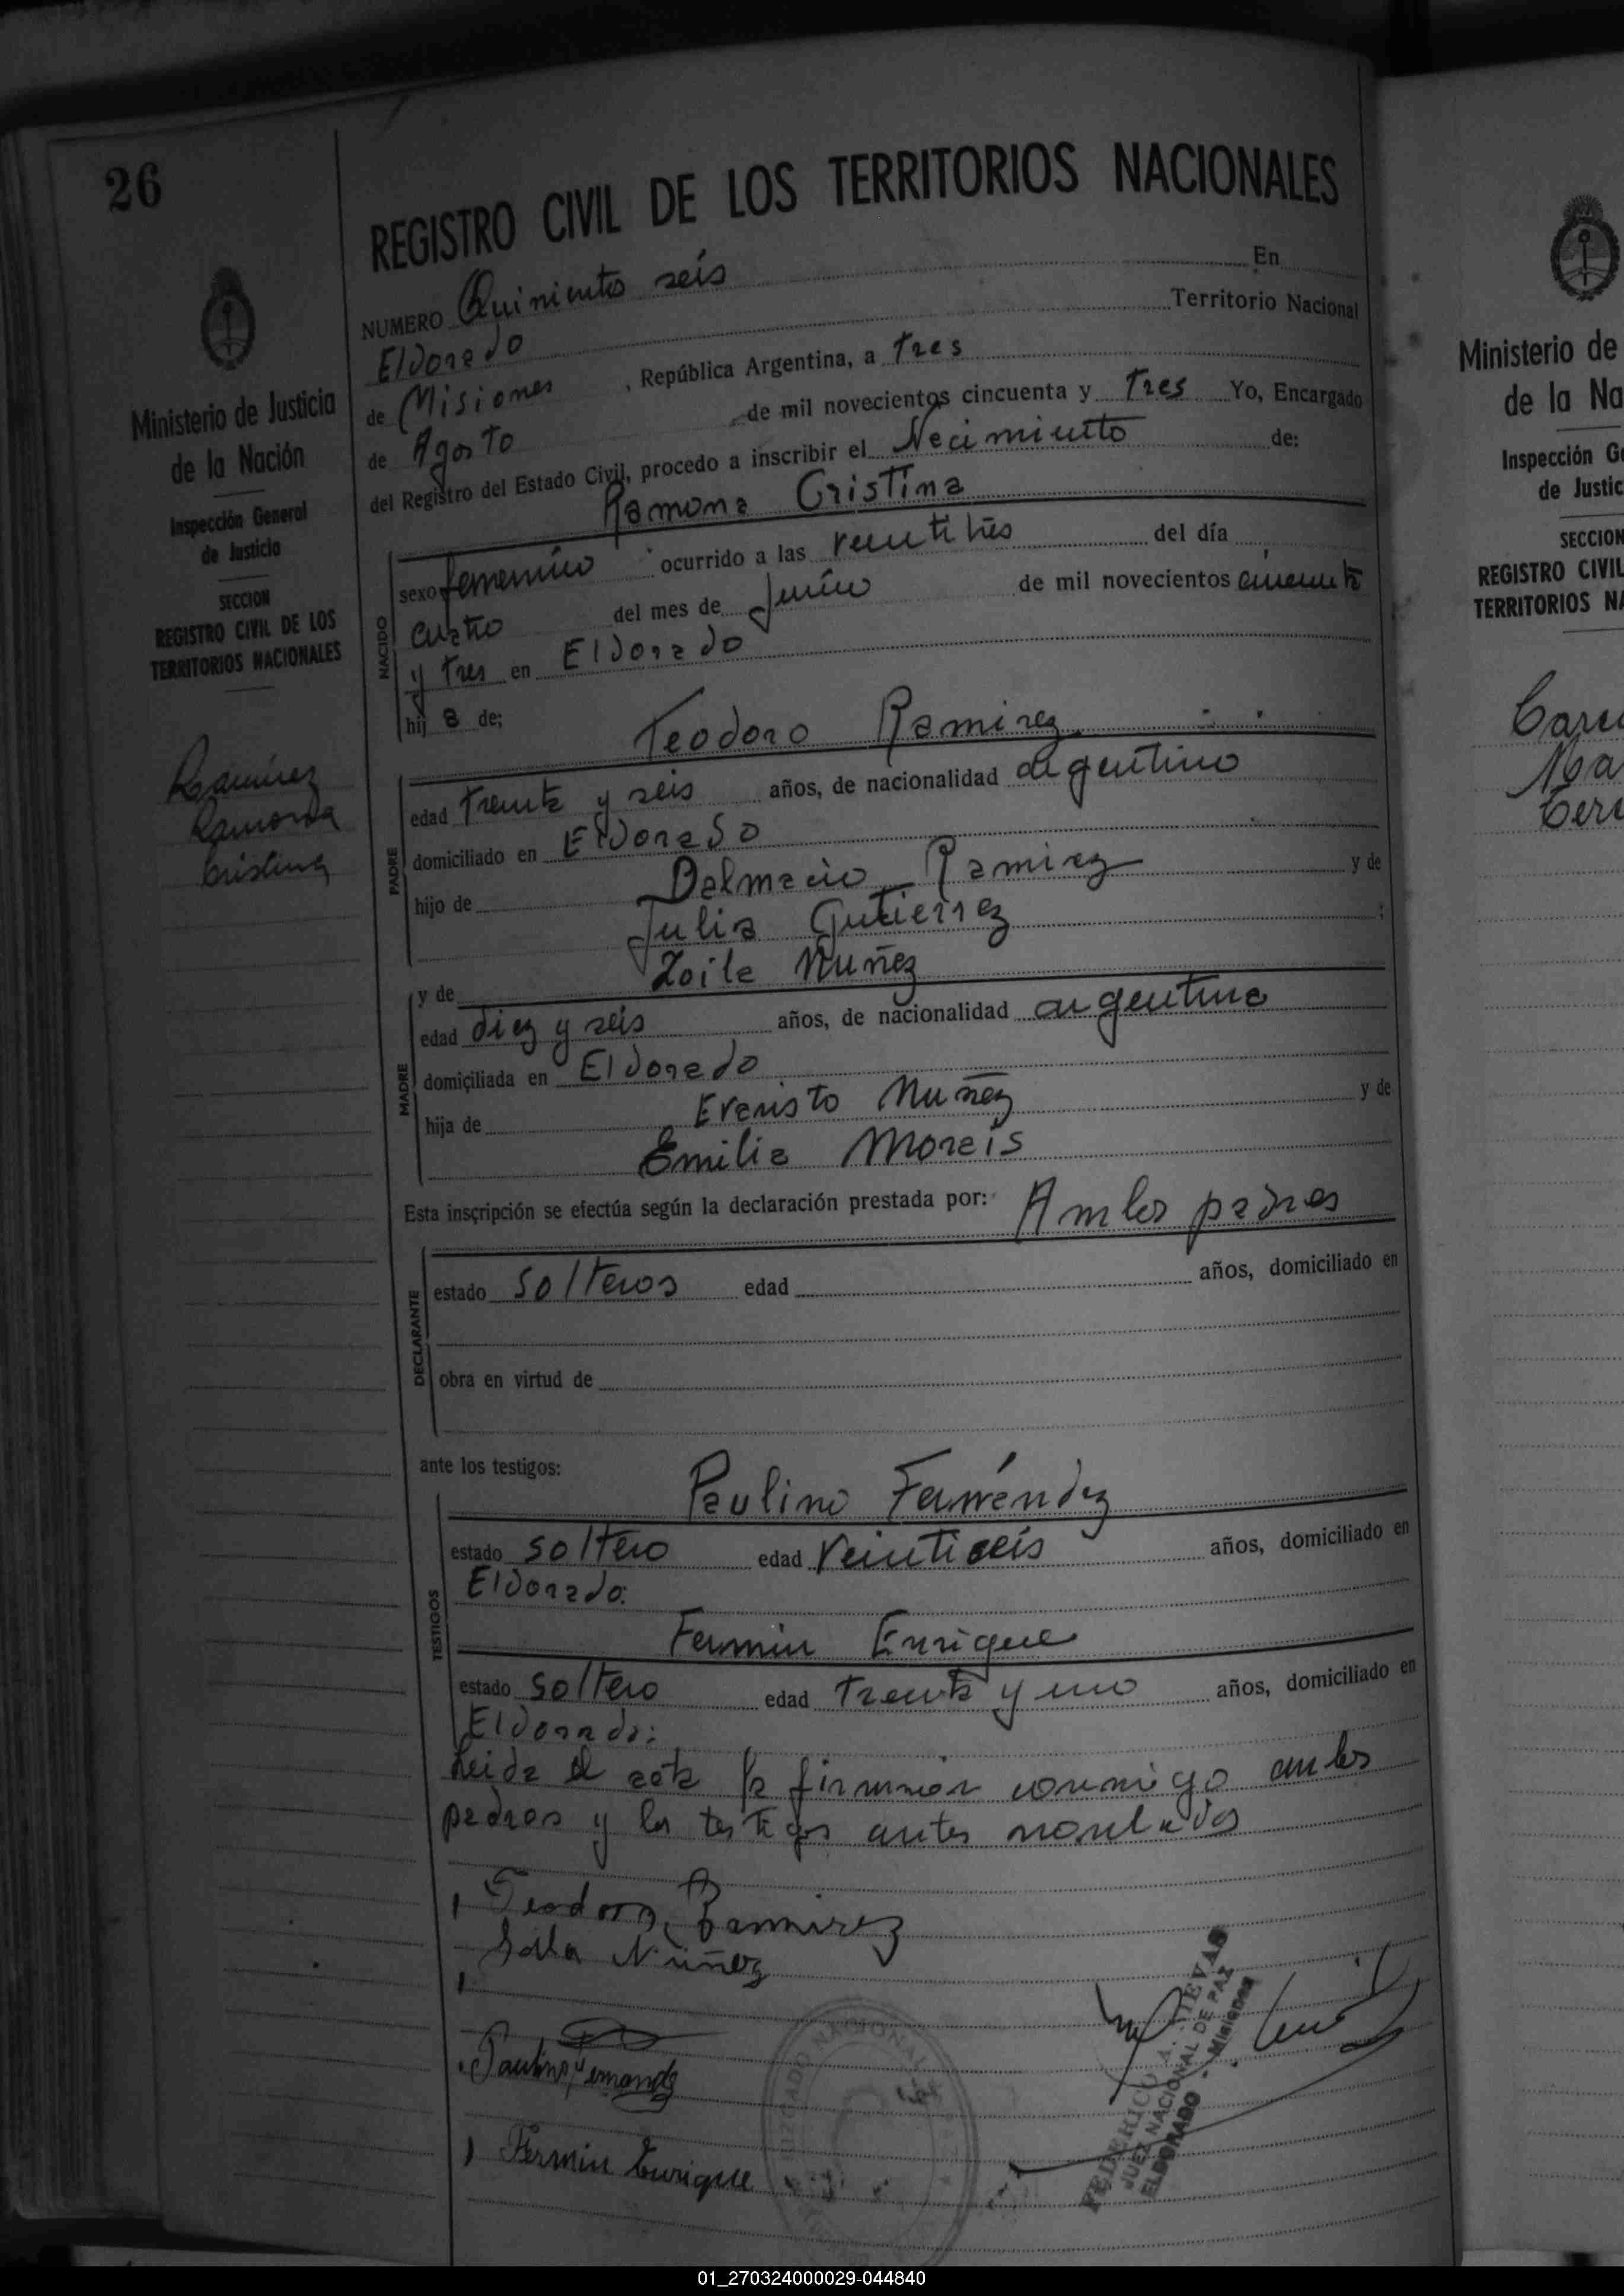 26
REGISTRO CIVIL DE LOS TERRITORIOS NACIONALES
NUMERO Quinientos seis En
Eldorado Territorio Nacional
de Misiones, República Argentina, a tres
de Agosto de mil novecientos cincuenta y tres Yo, Encargado
del Registro del Estado Civil, procedo a inscribir el Nacimiento de:
Ramona Cristina
NACIDO
sexo femenino ocurrido a las veintitrés del día
cuatro del mes de Junio de mil novecientos cincuenta
y tres en Eldorado
hij a de;
Teodoro Ramirez
PADRE
edad treinta y seis años, de nacionalidad argentino
domiciliado en Eldorado
hijo de Dalmacio Ramirez y de
Julia Gutierrez ;
y de Zoila Nuñez
MADRE
edad diez y seis años, de nacionalidad argentina
domiciliada en Eldorado
hija de Evaristo Nuñez y de
Emilia Morais
Esta inscripción se efectúa según la declaración prestada por: Ambos padres
DECLARANTE
estado solteros edad años, domiciliado en
obra en virtud de
ante los testigos:
Paulino Fernández
TESTIGOS
estado soltero edad veintiseis años, domiciliado en
Eldorado:
Fermin Enrique
estado soltero edad treinta y uno años, domiciliado en
Eldorado:
Leida el acta la firman conmigo ambos
padres y los testigos antes nombrados
Teodoro Ramirez
Núñez
Paulino Fernandez
Fermin Enrique
JUZGADO NACIONAL
FEDERICO A.
JUEZ NACIONAL DE PAZ
ELDORADO - Misiones
Ministerio de Justicia
de la Nación
Inspección General
de Justicia
SECCION
REGISTRO CIVIL DE LOS
TERRITORIOS NACIONALES
Ramírez
Ramona
Cristina
Ministerio de
de la Na
Inspección Ge
de Justic
SECCION
REGISTRO CIVIL
TERRITORIOS NA
01_270324000029-044840